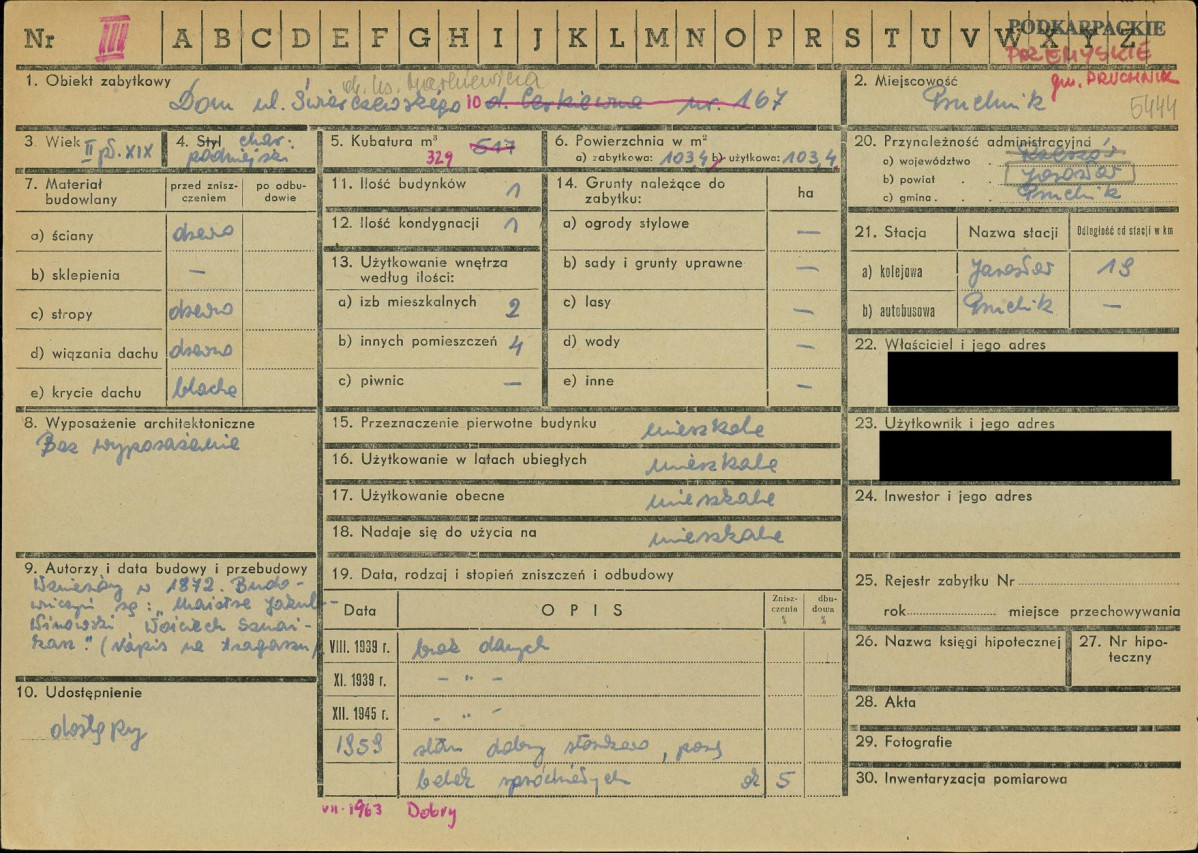 Nr III A B C D E F G H I J K L M N O P R S T U V W X Y Z
PODKARPACKIE
PRZEMYSKIE
gm. PRUCHNIK
1. Obiekt zabytkowy
Dom ul. Świerczewskiego 10 d. Cerkiewna nr. 167
2. Miejscowość
Pruchnik
5444
3. Wiek II pł. XIX
4. Styl char. podmiejski
5. Kubatura m³ 517
329
6. Powierzchnia w m²
a) zabytkowa: 103,4 b) użytkowa: 103,4
20. Przynależność administracyjna
a) województwo Rzeszów
b) powiat Jarosław
c) gmina Pruchnik
7. Materiał budowlany
przed zniszczeniem
po odbudowie
a) ściany drewno
b) sklepienia —
c) stropy drewno
d) wiązania dachu drewno
e) krycie dachu blacha
11. Ilość budynków 1
12. Ilość kondygnacji 1
13. Użytkowanie wnętrza według ilości:
a) izb mieszkalnych 2
b) innych pomieszczeń 4
c) piwnic —
14. Grunty należące do zabytku:
ha
a) ogrody stylowe —
b) sady i grunty uprawne —
c) lasy —
d) wody —
e) inne —
21. Stacja
Nazwa stacji
Odległość od stacji w km
a) kolejowa Jarosław 19
b) autobusowa Pruchnik —
22. Właściciel i jego adres
8. Wyposażenie architektoniczne
Bez wyposażenia
15. Przeznaczenie pierwotne budynku mieszkalne
16. Użytkowanie w latach ubiegłych mieszkalne
17. Użytkowanie obecne mieszkalne
18. Nadaje się do użycia na mieszkalne
23. Użytkownik i jego adres
24. Inwestor i jego adres
9. Autorzy i data budowy i przebudowy
Wzniesiony w 1872. Budo-
wniczymi są: "Maistse Jakub
Winowski, Wojciech Sznai-
karz." (Napis na tragarzu)
19. Data, rodzaj i stopień zniszczeń i odbudowy
Data
OPIS
Zniszczenia %
dbudowa %
VIII. 1939 r. brak danych
XI. 1939 r. - " -
XII. 1945 r. - " -
1959 stan dobry stosunkowo, parę
belek spróchniałych ok 5
VII. 1963 Dobry
25. Rejestr zabytku Nr
rok miejsce przechowywania
26. Nazwa księgi hipotecznej
27. Nr hipoteczny
10. Udostępnienie
dostępny
28. Akta
29. Fotografie
30. Inwentaryzacja pomiarowa